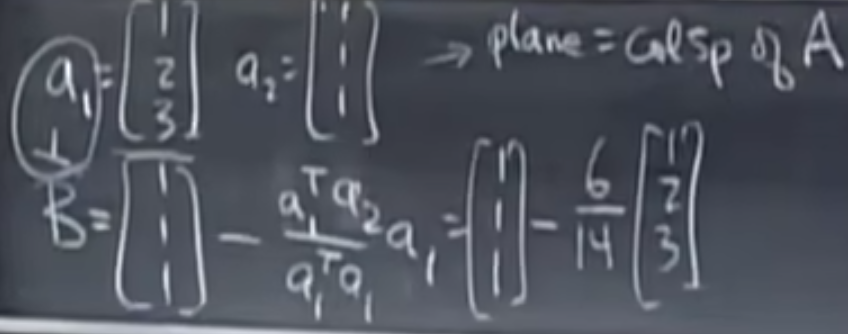 a₁ = [1 2 3] a₂ = [1 1 1] → plane = colsp of A
⊥
B = [1 1 1] − a₁ᵀa₂ / a₁ᵀa₁ a₁ = [1 1 1] − 6/14 [1 2 3]